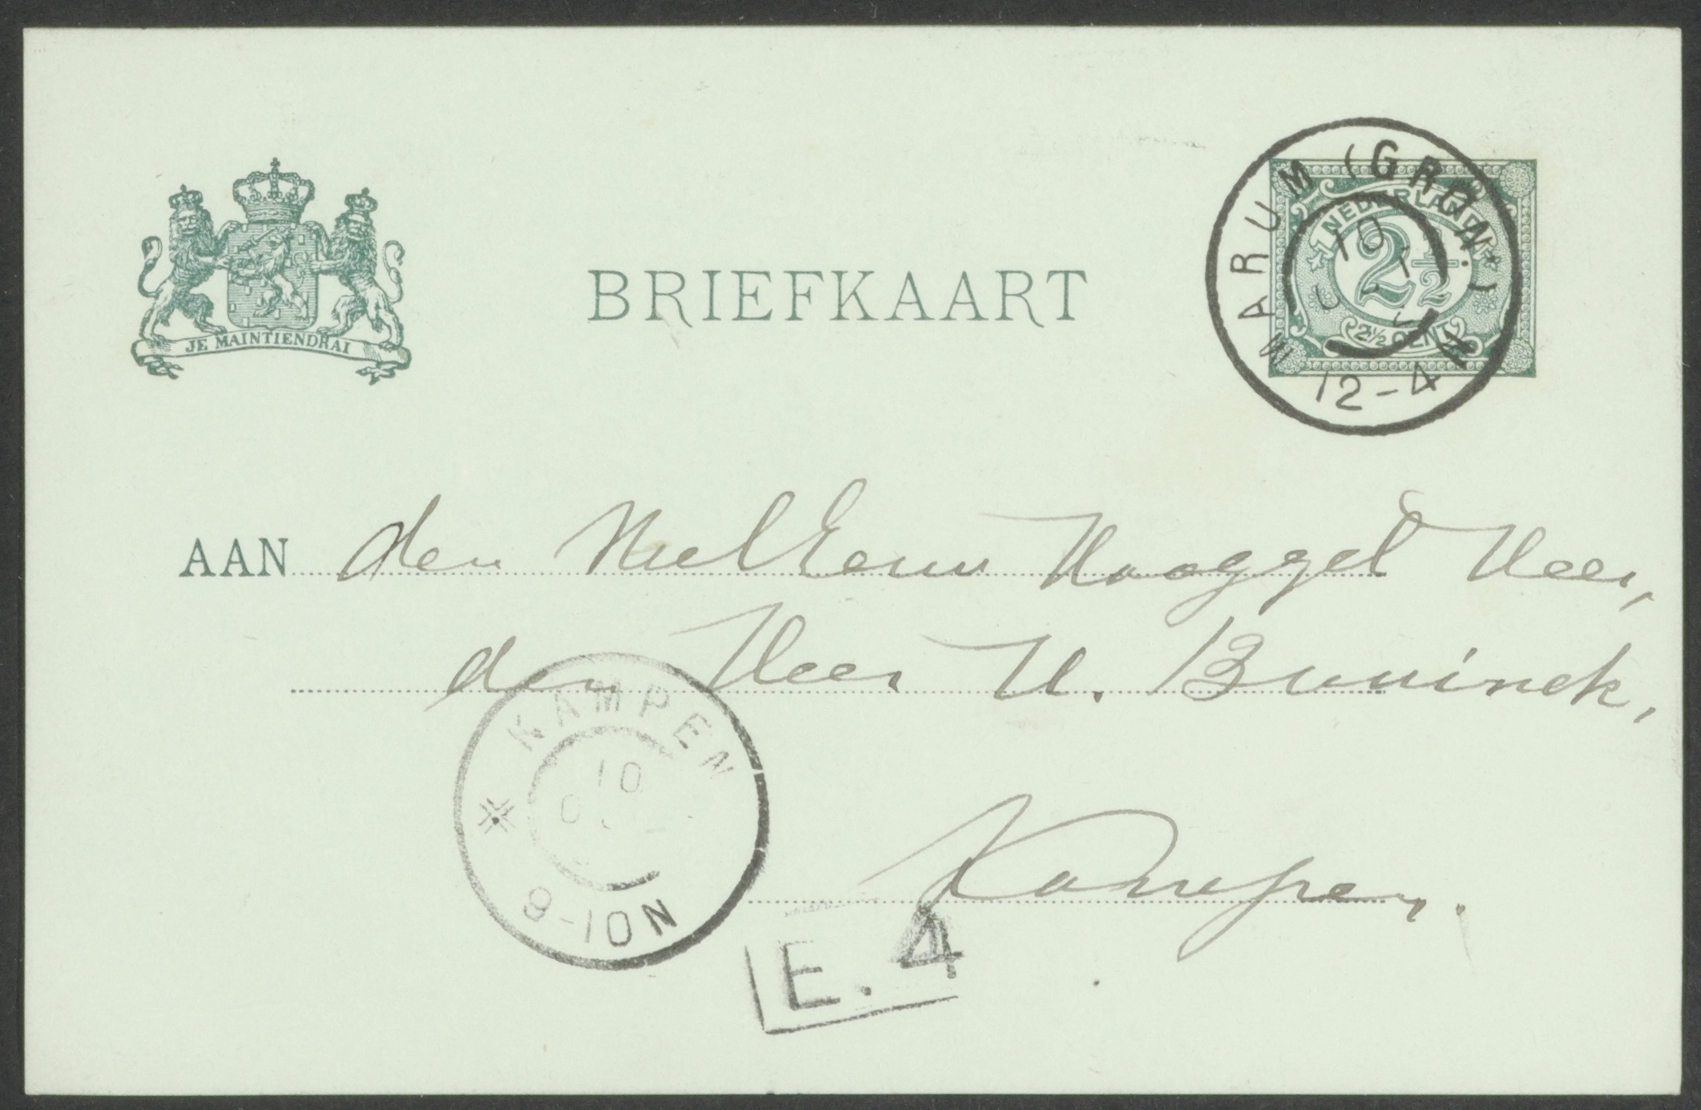 JE MAINTIENDRAI
BRIEFKAART
MARUM (GRON.)
10
12-4N
NEDERLAND
2½
2½ CENT
AAN den WelEerw Hooggel Heer,
den Heer H. Bavinck,
Kampen.
KAMPEN
10
9-10N
E. 4